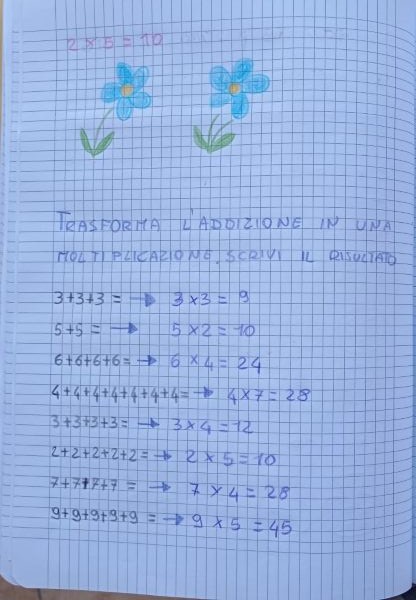 2 × 5 = 10
TRASFORMA L'ADDIZIONE IN UNA
MOLTIPLICAZIONE. SCRIVI IL RISULTATO
3+3+3 = → 3 × 3 = 9
5+5 = → 5 × 2 = 10
6+6+6+6= → 6 × 4 = 24
4+4+4+4+4+4+4= → 4 × 7 = 28
3+3+3+3= → 3 × 4 = 12
2+2+2+2+2= → 2 × 5 = 10
7+7+7+7 = → 7 × 4 = 28
9+9+9+9+9 = → 9 × 5 = 45